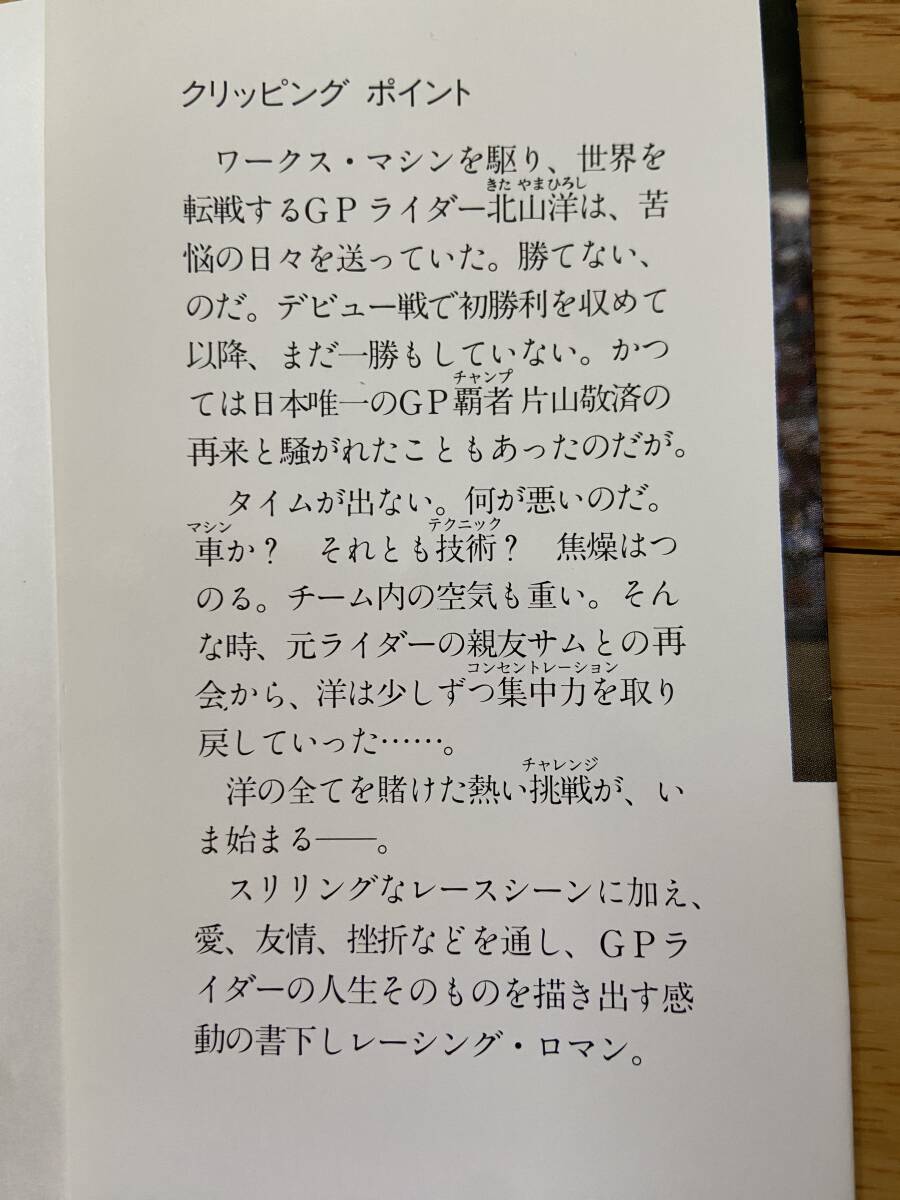 クリッピング ポイント
ワークス・マシンを駆り、世界を
転戦するGPライダー北山洋は、苦
きた やまひろし
悩の日々を送っていた。勝てない、
のだ。デビュー戦で初勝利を収めて
以降、まだ一勝もしていない。かつ
ては日本唯一のGP覇者片山敬済の
チャンプ
再来と騒がれたこともあったのだが。
タイムが出ない。何が悪いのだ。
車か? それとも技術? 焦燥はつ
マシン
テクニック
のる。チーム内の空気も重い。そん
な時、元ライダーの親友サムとの再
会から、洋は少しずつ集中力を取り
コンセントレーション
戻していった……。
洋の全てを賭けた熱い挑戦が、い
チャレンジ
ま始まる――。
スリリングなレースシーンに加え、
愛、友情、挫折などを通し、GPラ
イダーの人生そのものを描き出す感
動の書下しレーシング・ロマン。